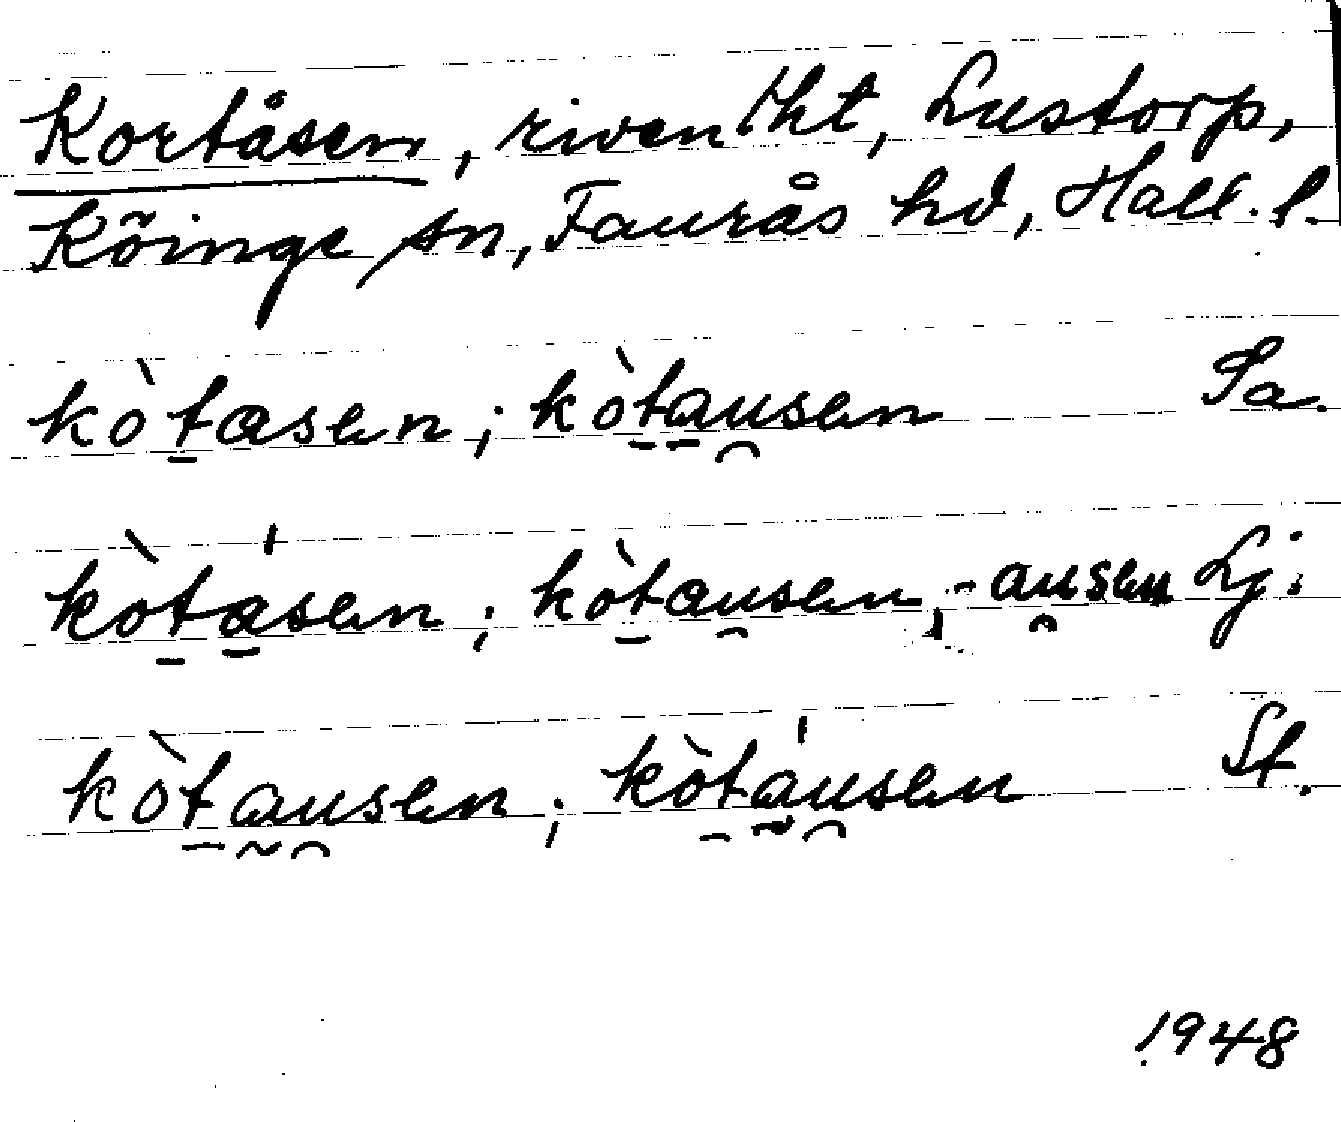 Kortåsen, riven ht, Lustorp,
Köinge sn, Faurås hd, Hall. l.
kòtasen; kòtausen Sa.
kòtásen; kòtausen, -ausen Lj.
kòtausen; kòtáusen St.
1948